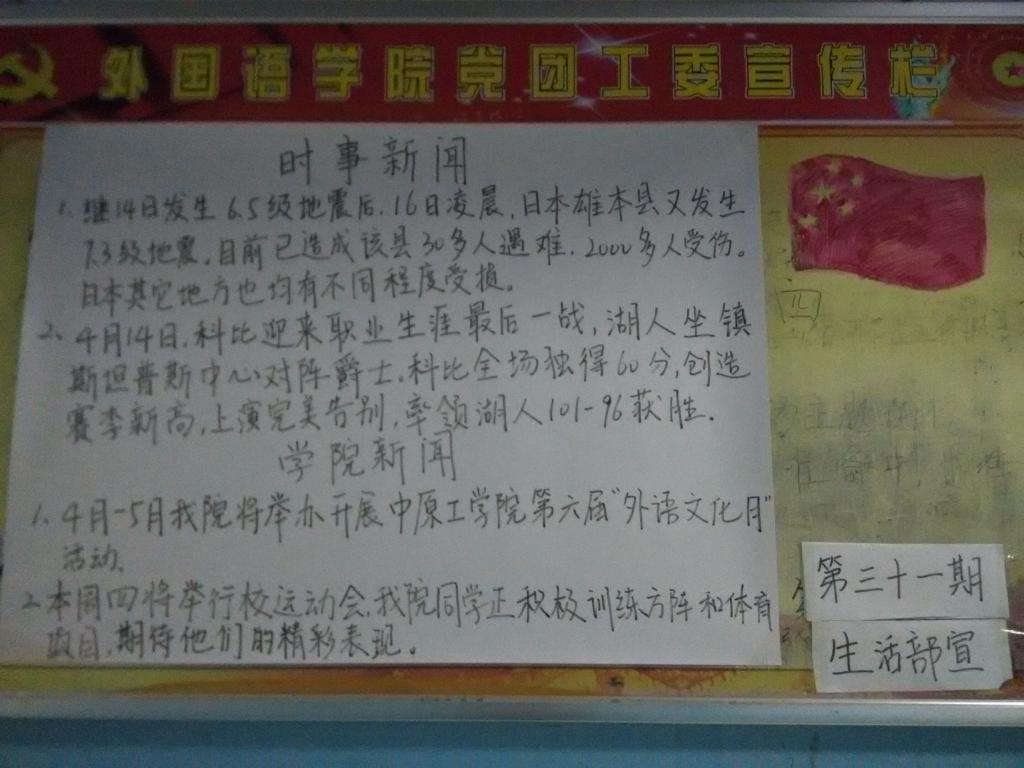 外国语学院党团工委宣传栏
时事新闻
1. 继14日发生6.5级地震后,16日凌晨,日本雄本县又发生
7.3级地震,目前已造成该县30多人遇难,2000多人受伤。
日本其它地方也均有不同程度受损。
2. 4月14日,科比迎来职业生涯最后一战,湖人坐镇
斯坦普斯中心对阵爵士,科比全场独得60分,创造
赛季新高,上演完美告别,率领湖人101-96获胜.
学院新闻
1. 4月-5月我院将举办开展中原工学院第六届"外语文化月"
活动.
2.本周四将举行校运动会,我院同学正积极训练方阵和体育
项目,期待他们的精彩表现。
第三十一期
生活部宣